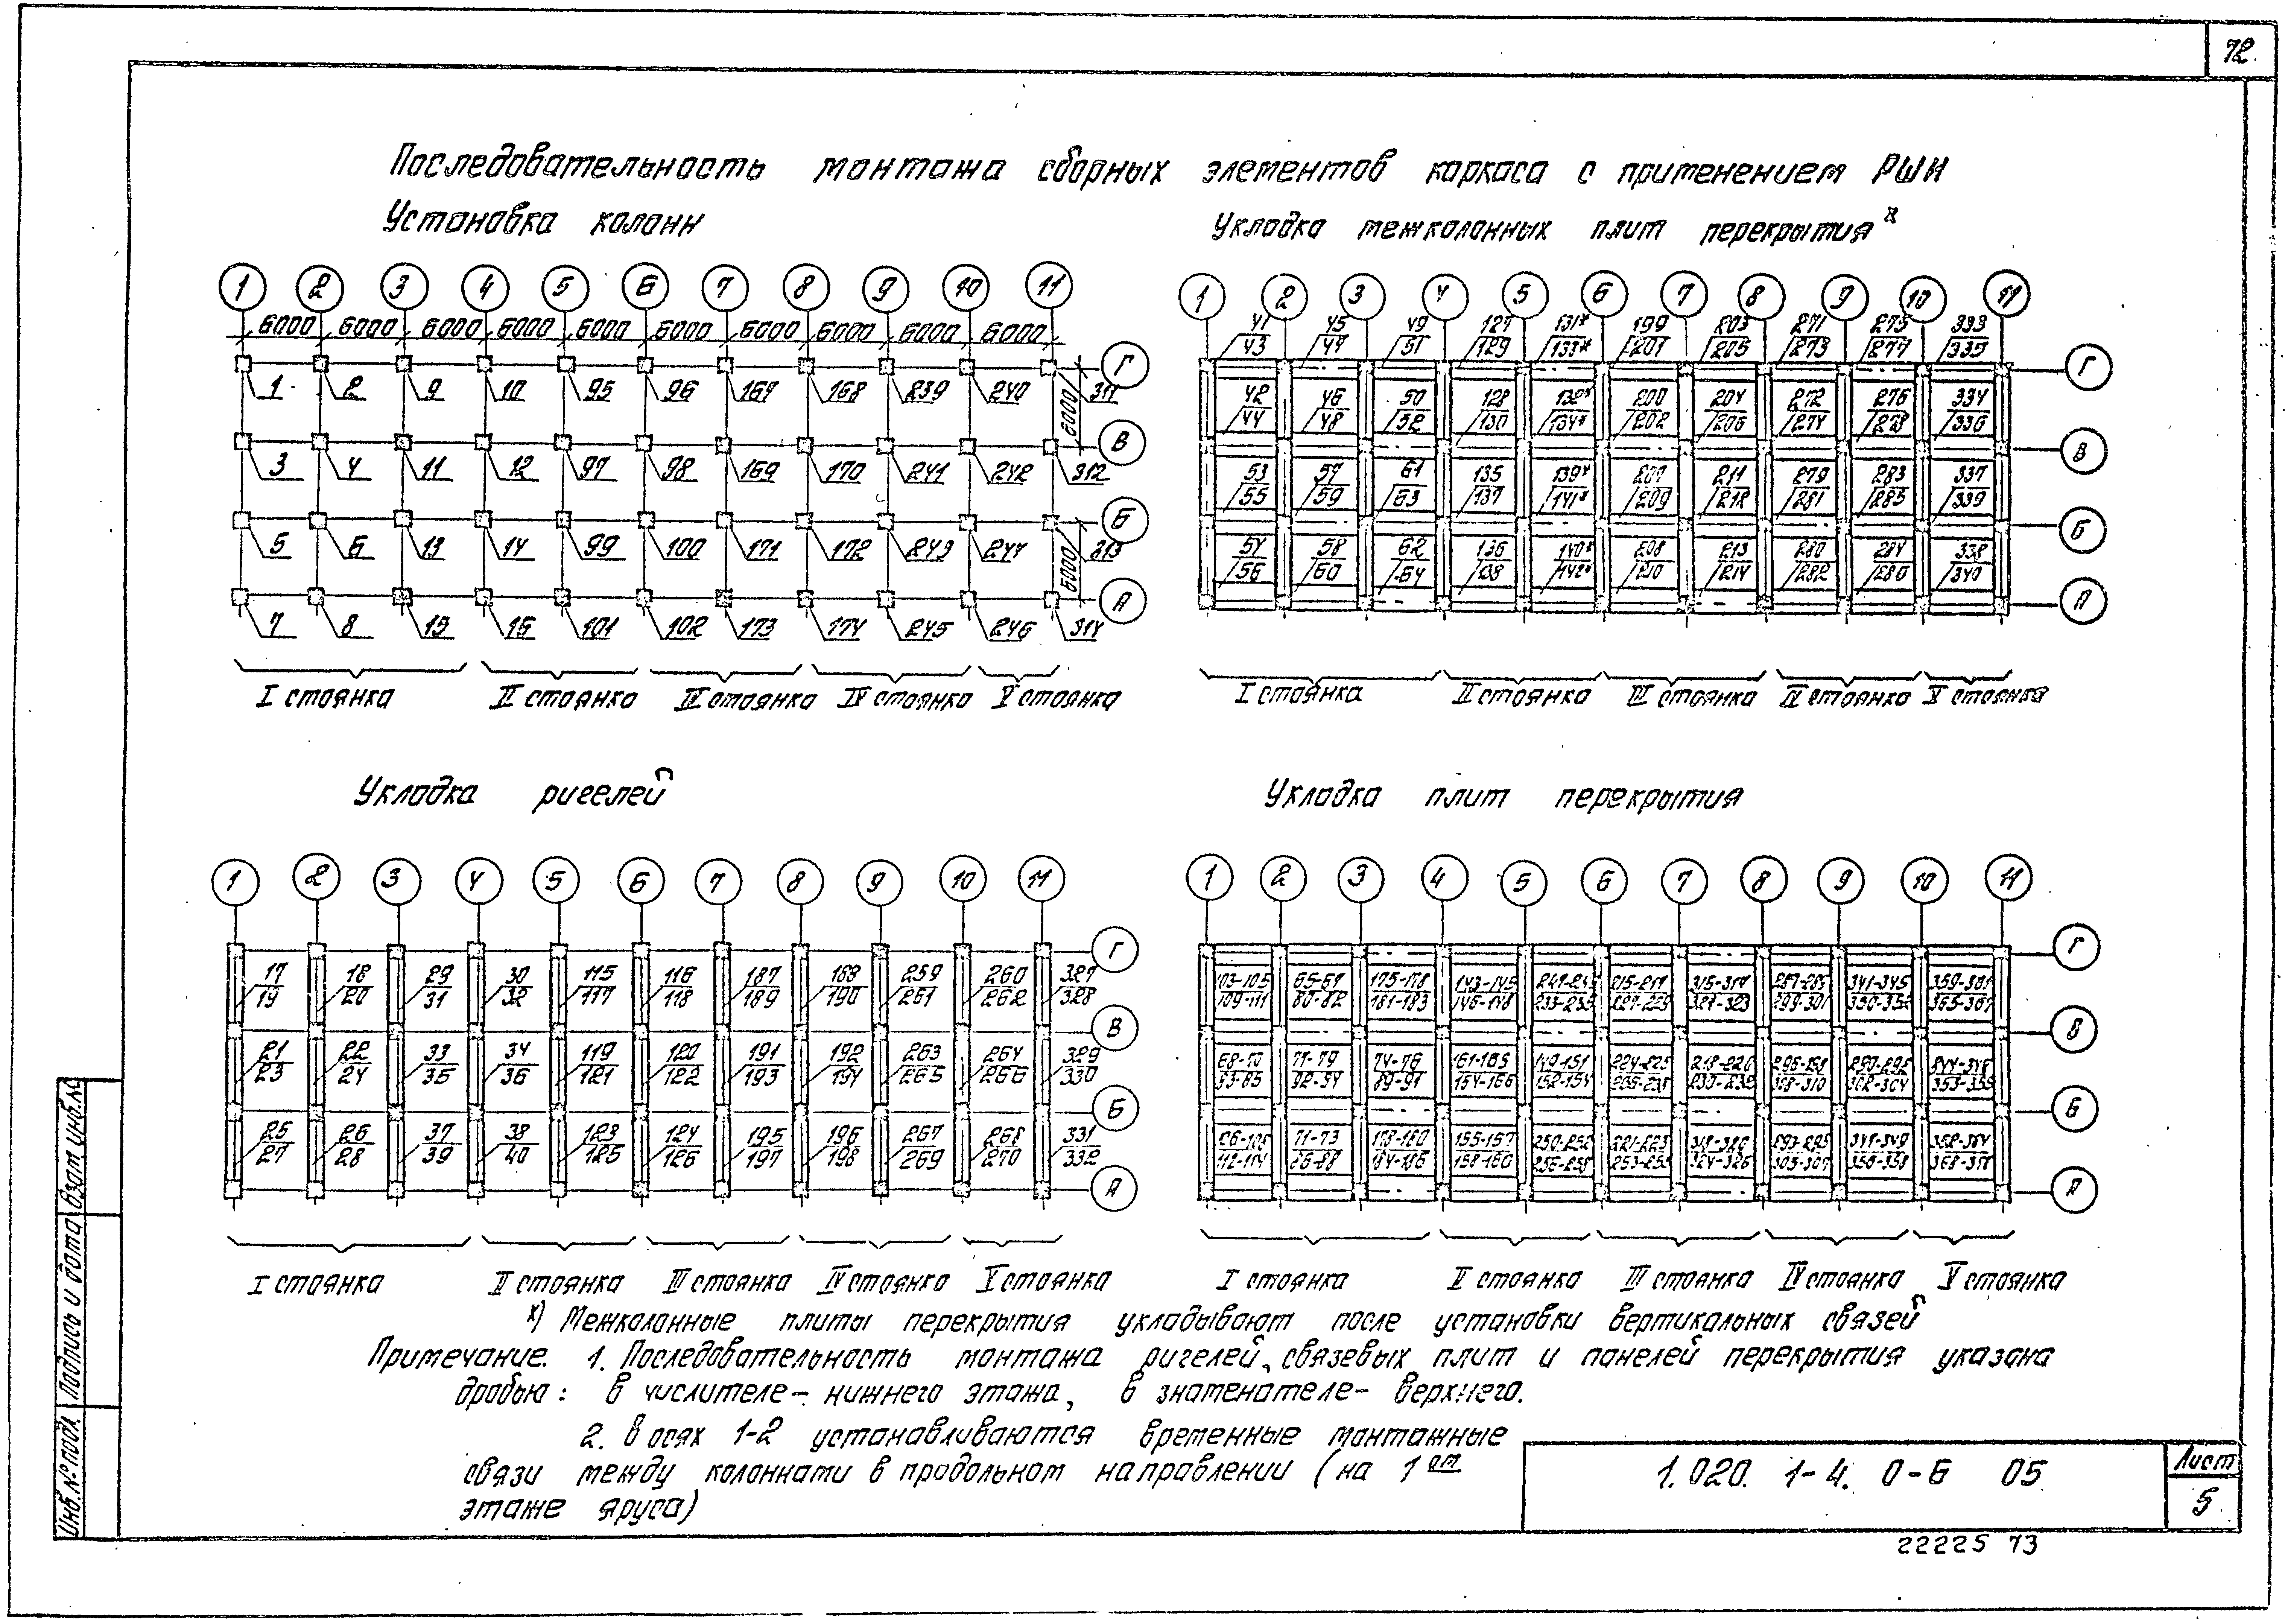 72
Последовательность монтажа сборных элементов каркаса с применением РШИ
Установка колонн
1 2 3 4 5 6 7 8 9 10 11
6000 6000 6000 6000 6000 6000 6000 6000 6000 6000
1 2 9 10 95 96 167 168 239 240 311 Г
6000
3 4 11 12 97 98 169 170 241 242 312 В
5 6 13 14 99 100 171 172 243 244 313 Б
6000
7 8 15 16 101 102 173 174 245 246 314 А
I стоянка II стоянка III стоянка IV стоянка V стоянка
Укладка межколонных плит перекрытия x
1 2 3 4 5 6 7 8 9 10 11
41 45 49 127 131* 199 203 271 275 333
43 47 51 129 133* 201 205 273 277 335 Г
42 46 50 128 132* 200 204 272 276 334
44 48 52 130 134* 202 206 274 278 336 В
53 57 61 135 139* 207 211 279 283 337
55 59 63 137 141* 209 212 281 285 339 Б
54 58 62 136 140* 208 213 280 284 338
56 60 64 138 142* 210 214 282 286 340 А
I стоянка II стоянка III стоянка IV стоянка V стоянка
Укладка ригелей
1 2 3 4 5 6 7 8 9 10 11
Г
17 18 29 30 115 116 187 188 259 260 327
19 20 31 32 117 118 189 190 261 262 328
В
21 22 33 34 119 120 191 192 263 264 329
23 24 35 36 121 122 193 194 265 266 330
Б
25 26 37 38 123 124 195 196 267 268 331
27 28 39 40 125 126 197 198 269 270 332
А
I стоянка II стоянка III стоянка IV стоянка V стоянка
Укладка плит перекрытия
1 2 3 4 5 6 7 8 9 10 11
Г
103-105 65-67 175-178 143-145 215-217 341-345
109-111 80-82 181-183 146-148 227-229 299-301
В
68-70 77-79 74-76 161-163 149-151 218-220
83-85 92-94 89-91 164-166 152-154 230-232 308-310 302-304
Б
71-73 178-180 155-157 221-223
112-114 86-88 184-186 158-160 256-258 253-255 324-326 305-307 356-358
А
I стоянка II стоянка III стоянка IV стоянка V стоянка
x) Межколонные плиты перекрытия укладывают после установки вертикальных связей
Примечание. 1. Последовательность монтажа ригелей, связевых плит и панелей перекрытия указана
дробью: в числителе- нижнего этажа, в знаменателе- верхнего.
2. В осях 1-2 устанавливаются временные монтажные
связи между колоннами в продольном направлении (на 1 ом
этаже яруса)
1.020. 1-4. 0-6 05
Лист
5
22225 73
Инв.№ подл. Подпись и дата Взам.инв.№